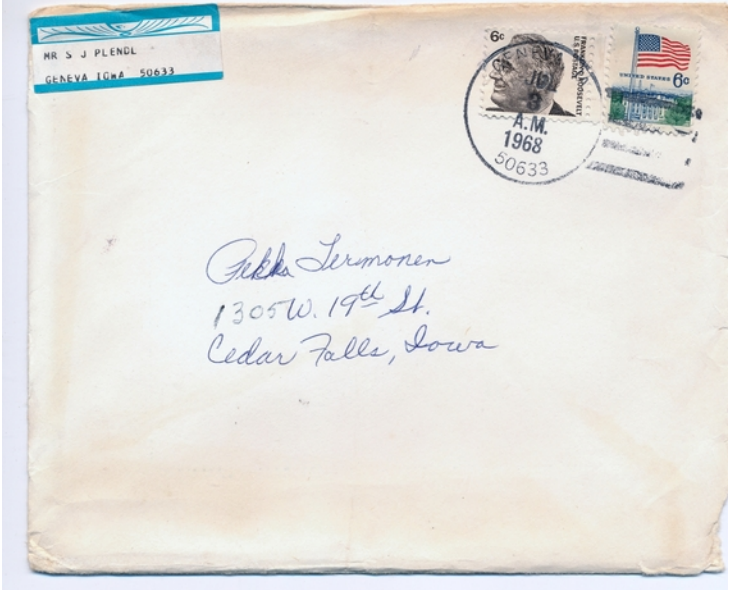 MR S J PLENDL
GENEVA IOWA 50633
6c
FRANKLIN D ROOSEVELT
U.S. POSTAGE
UNITED STATES 6c
GENEVA
A.M.
1968
50633
Pekka Termonen
1305 W. 19th St.
Cedar Falls, Iowa